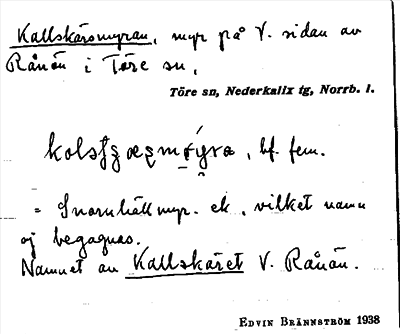 Kallskärsmyran, myr på V. sidan av
Rånön i Töre sn.
Töre sn, Nederkalix tg, Norrb. l.
, bf. fem.
= Snarnhällmyr. ek., vilket namn
ej begagnas.
Namnet av Kallskäret V. Rånön.
EDVIN BRÄNNSTRÖM 1938